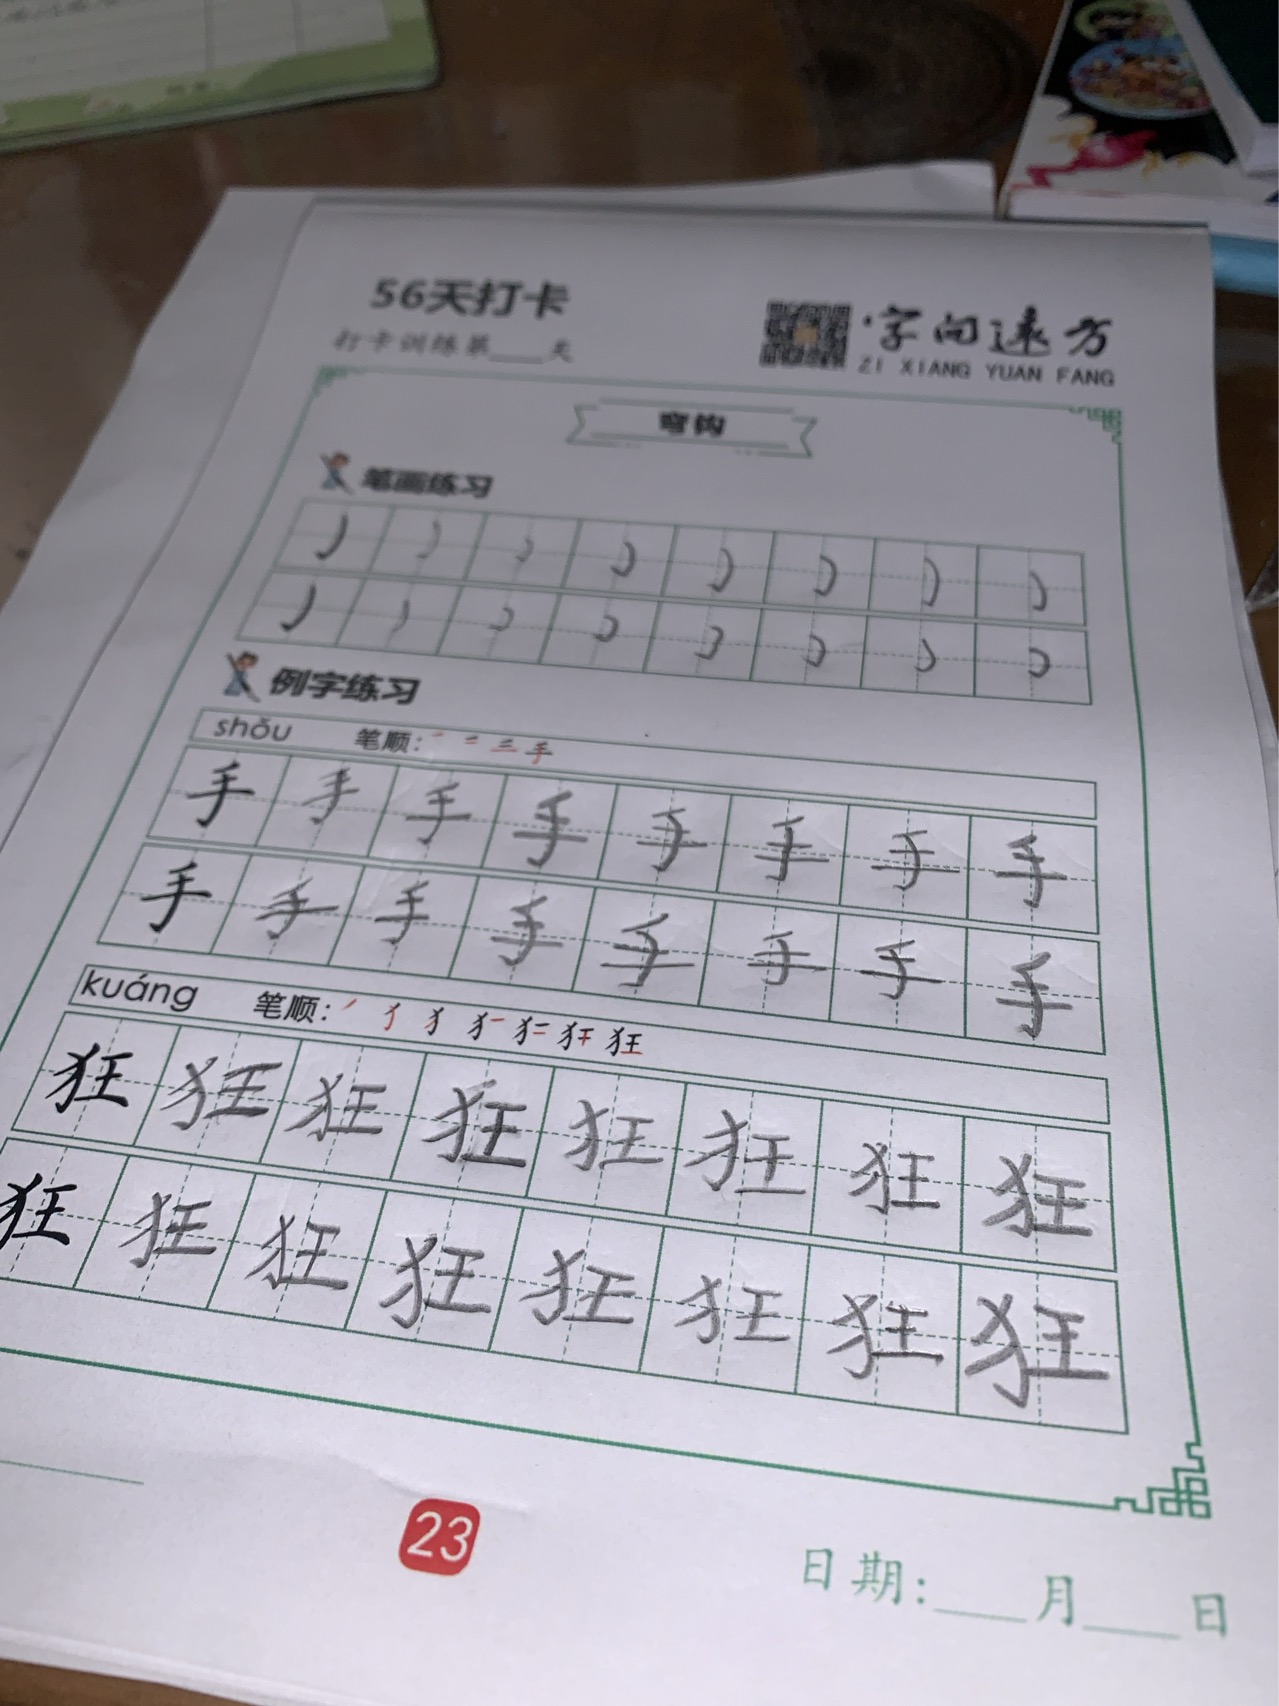 56天打卡
打卡训练第___天
·字向远方
ZI XIANG YUAN FANG
弯钩
笔画练习
例字练习
shǒu 笔顺：一 二 三 手
手 手 手 手 手 手 手 手
手 手 手 手 手 手 手 手
kuáng 笔顺：
狂 狂 狂 狂 狂 狂 狂 狂
狂 狂 狂 狂 狂 狂 狂 狂
23
日期:___月___日